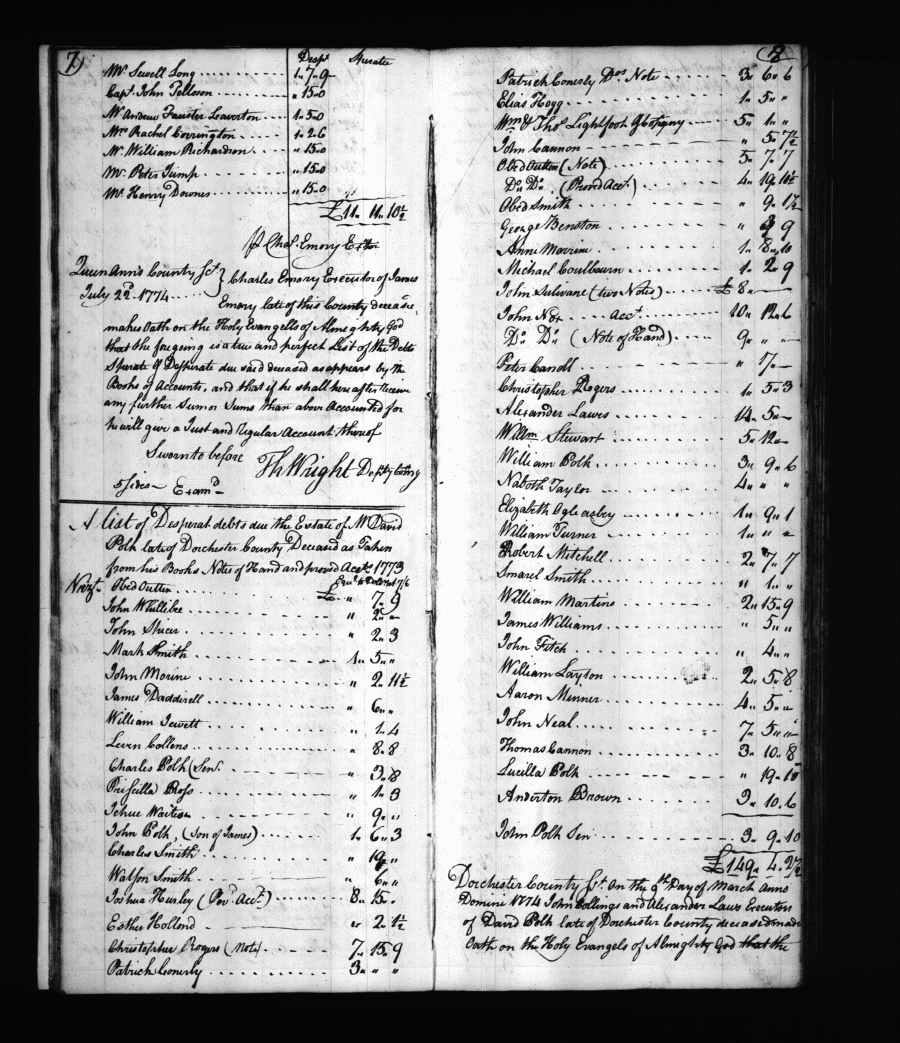 7)
Desp.t Sperate
Mr. Sewell Long 1„7„9
Capt. John Telloson „15„0
Mr. Andrew Fauster Leaverton 1„5„0
Mrs Rachel Corrington 1„2„6
Mr. William Richardson „15„0
Mr. Peter Jump „15„0
Mr. Henry Downes „15„0
£11„ 11„ 10½
pr Chas. Emory Extor
Queen Ann's County Sct. } Charles Emory Executor of James
July 22d. 1774 Emory late of this County decease
makes Oath on the Holy Evangells of Almighty God
that the foregoing is a true and perfect List of the Debts
Sperate & Desperate due said deceased as appears by the
Books of Accounts, and that if he shall hereafter receive
any further Sum or Sums than above Accounted for
he will give a Just and regular Account thereof
Sworn to before Th Wright Depty Comry
5 Sides Examd
A list of Desperat debts due the Estate of Mr David
Polk late of Dorchester County Deceased as Taken
from his Books Notes of Hand and proved Accts. 1773
Obed Outten £ „ 7„ 9
John Whillibee „ 2„ „
John Spicer „ 2„ 3
Mark Smith 1„ 5„ „
John Morine „ 2„ 11½
James Daddirell „ 6„ „
William Jewett „ 1„ 4
Leven Collens „ 8„ 8
Charles Polk (Senr. „ 3„ 8
Priscilla Ross „ 1„ 3
Jehue Waitson „ 9„ „
John Polk, (Son of James) 1„ 6„ 3
Charles Smith „ 19„ „
Watson Smith „ 6„ „
Joshua Hurley (Prov. Acct.) 8„ 15„ „
Esther Hollond „ 2„ 1½
Christopher Rogers (Note) 7„ 15„ 9
Patrick Conerly 3„ „ „
8
Patrick Conerly Dos Note 3„ 6„ 6
Elias Hogg 1„ 5„ „
Wm. & Thos. Lightfoot 5„ 1„ „
John Cannon „ 5„ 7½
Obed Outten (Note) 5„ 7„ 7
Do. Do. (Proved Acct.) 4„ 19„ 10½
Obed Smith „ 9„ 1½
George Benston „ 9
Anne Morrine 1„ 8„ 10
Michael Coulbourn 1„ 2„ 9
John Sulivane (two Notes) £ 8„
John Nox Acct. 10„ 12„ 6
Do. Do. (Note of Hand) 9„ „
Peter Candl „ 7„
Christopher Rogers 1„ 5„ 3
Alexander Laws 14„ 5„
Willm Stewart 5„ 12„
William Polk 3„ 9„ 6
Naboth Taylor 4„ „ „
Elizabeth Ogleasby 1„ 9„ 1
William Turner 1„ „ „
Robert Mitchell 2„ 7„ 7
Smarel Smith „ 1„ „
William Martins 2„ 15„ 9
James Williams „ 5„ „
John Fitch „ 4„ „
William Layton 2„ 5„ 8
Aaron Minner 4„ 5„ „
John Neal 7„ 5„ „
Thomas Cannon 3„ 10„ 8
Lucilla Polk „ 19„ 10
Anderton Brown 3„ 10„ 6
John Polk Sen 3„ 9„ 10
£149„ 4„ 2½
Dorchester County Sct. On the 9th Day of March Anno
Domini 1774 John Collings and Alexander Laws Executors
of David Polk late of Dorchester County deceased made
Oath on the Holy Evangels of Almighty God that the